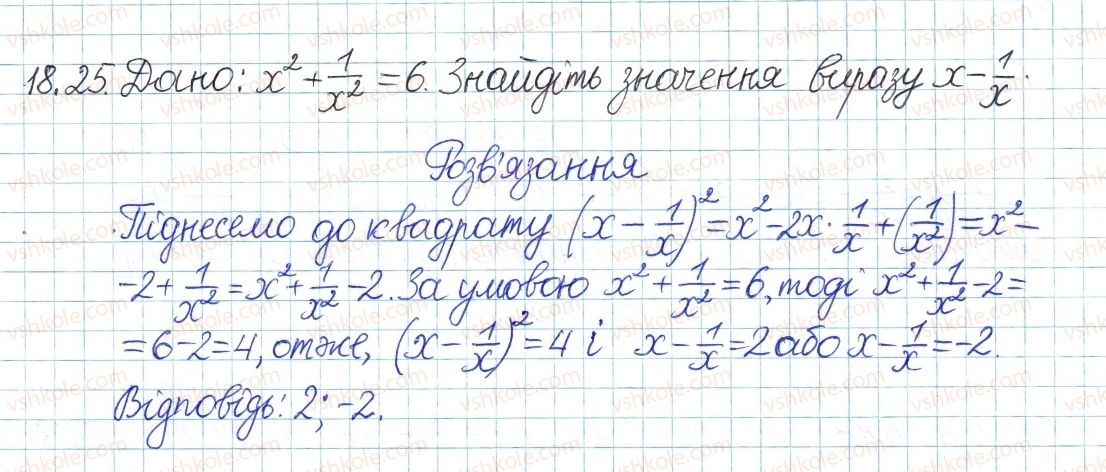 18.25. Дано: x² + 1/x² = 6. Знайдіть значення виразу x - 1/x.
Розв'язання
Піднесемо до квадрату (x - 1/x)² = x² - 2x · 1/x + (1/x²) = x² -
-2 + 1/x² = x² + 1/x² - 2. За умовою x² + 1/x² = 6, тоді x² + 1/x² - 2 =
= 6 - 2 = 4, отже, (x - 1/x)² = 4 і x - 1/x = 2 або x - 1/x = -2.
Відповідь: 2; -2.